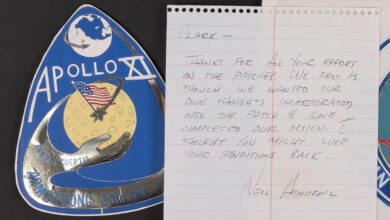 APOLLO XI
COEPTIS
ARMSTRONG
CLARK —
THANKS FOR ALL YOUR EFFORTS
ON THE PATCHES. WE FELT AS
THOUGH WE WANTED OUR
OWN THOUGHTS INCORPORATED
INTO THE PATCH & HAVE
COMPLETED OUR DESIGN. I
THOUGHT YOU MIGHT LIKE
YOUR RENDITIONS BACK.
NEIL ARMSTRONG